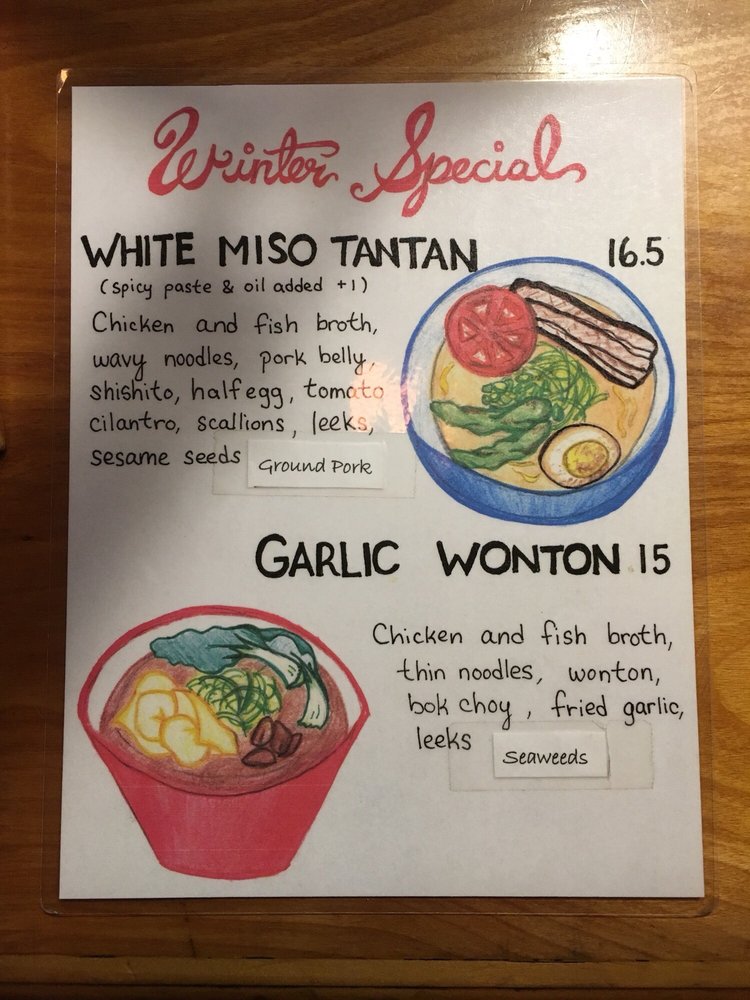 Winter Special
WHITE MISO TANTAN 16.5
(spicy paste & oil added +1)
Chicken and fish broth,
wavy noodles, pork belly,
shishito, half egg, tomato
cilantro, scallions, leeks,
sesame seeds Ground Pork
GARLIC WONTON 15
Chicken and fish broth,
thin noodles, wonton,
bok choy, fried garlic,
leeks Seaweeds